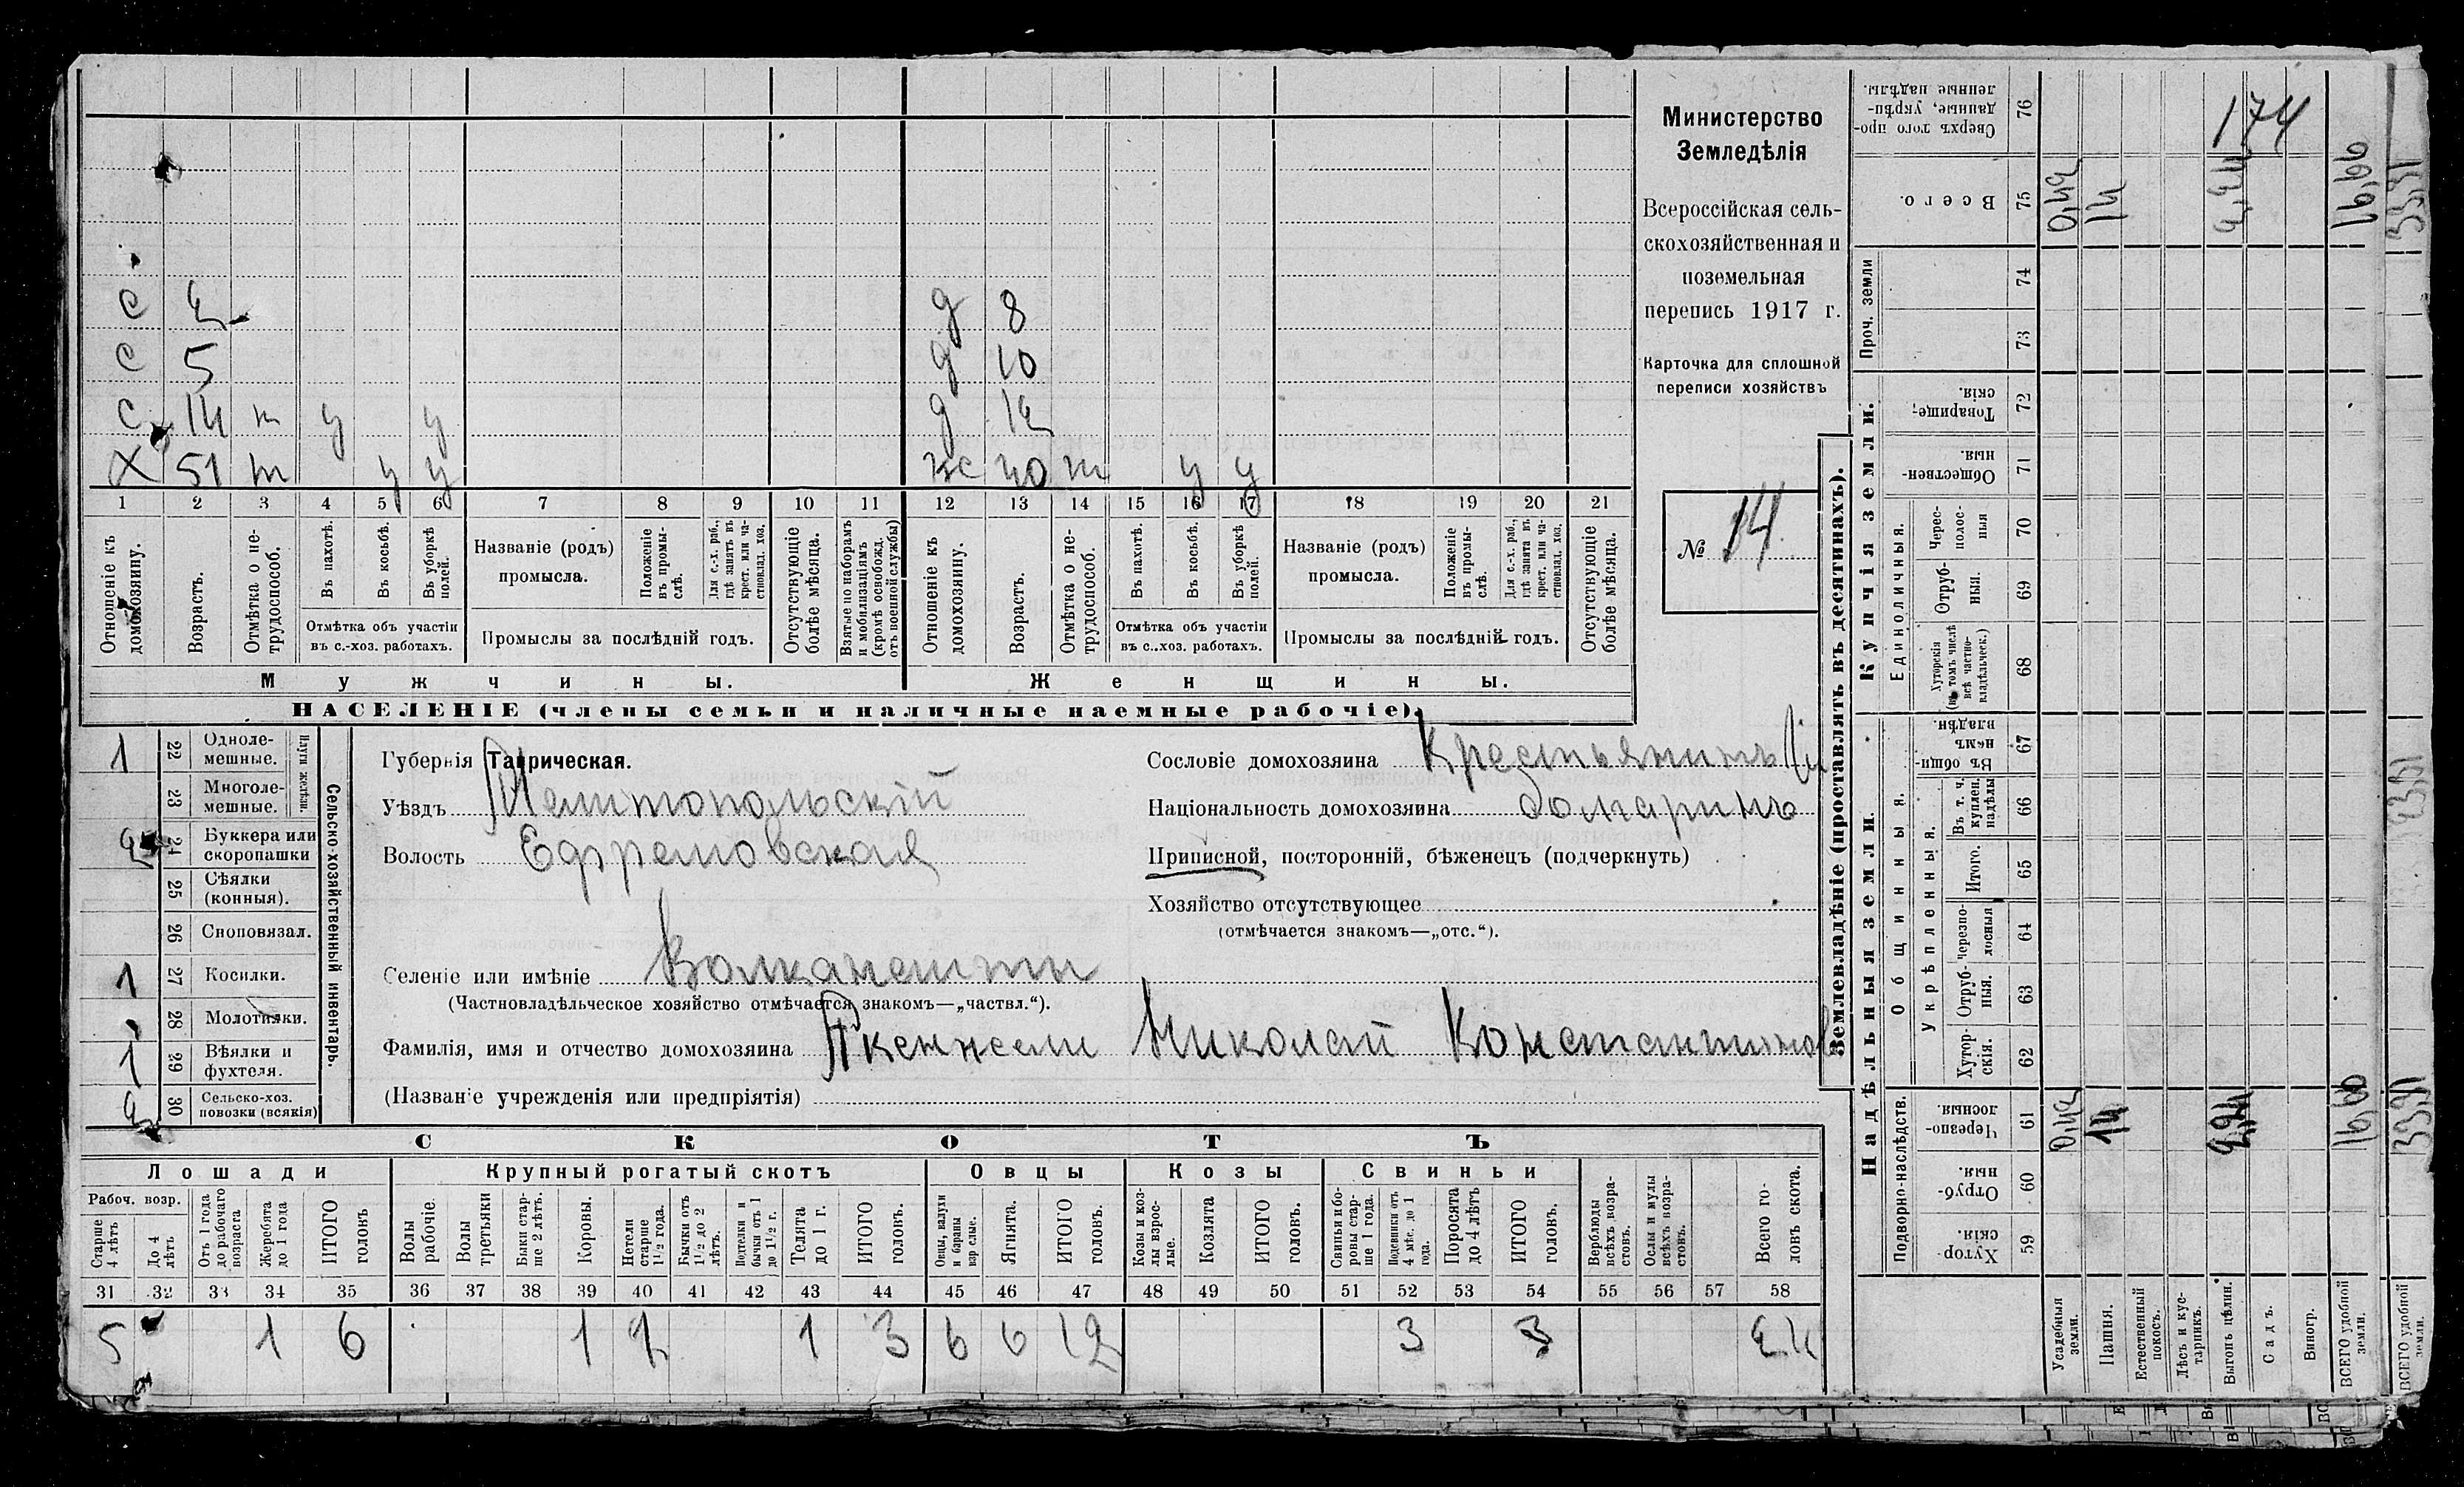 Министерство
Земледѣлія
Всероссійская сель-
скохозяйственная и
поземельная
перепись 1917 г.
Карточка для сплошной
переписи хозяйствъ
№ 14
174
С 5 д 10
С 14 т у у д 12
Х 51 т у у ж 40 т у у
1 2 3 4 5 6 7 8 9 10 11 12 13 14 15 16 17 18 19 20 21
Отношеніе къ домохозяину.
Возрастъ.
Отмѣтка о не-трудоспособ.
Въ пахотѣ.
Въ косьбѣ.
Въ уборкѣ полей.
Отмѣтка объ участіи
въ с.-хоз. работахъ.
Названіе (родъ)
промысла.
Положеніе въ промы-слѣ.
Для с.-х. раб., гдѣ занятъ въ крест. или ча-стновлад. хоз.
Промыслы за послѣдній годъ.
Отсутствующіе болѣе мѣсяца.
Взятые по наборамъ и мобилизаціямъ (кромѣ освобожд. отъ военной службы)
Отношеніе къ домохозяину.
Возрастъ.
Отмѣтка о не-трудоспособ.
Въ пахотѣ.
Въ косьбѣ.
Въ уборкѣ полей.
Отмѣтка объ участіи
въ с..хоз. работахъ.
Названіе (родъ)
промысла.
Положеніе въ промы-слѣ.
Для с.-х. раб., гдѣ занята въ крест. или ча-стновлад. хоз.
Промыслы за послѣдній годъ.
Отсутствующіе болѣе мѣсяца.
Мужчины.
Женщины.
НАСЕЛЕНІЕ (члены семьи и наличные наемные рабочіе).
1 22 Одноле-мешные.
23 Многоле-мешные.
2 24 Буккера или скоропашки
25 Сѣялки (конныя).
26 Сноповязал.
1 27 Косилки.
28 Молотилки.
1 29 Вѣялки и фухтеля.
2 30 Сельско-хоз. повозки (всякія)
Сельско-хозяйственный инвентарь.
Губернія Таврическая.
Уѣздъ Мелитопольскій
Волость Ефремовская
Селеніе или имѣніе Волканешты
(Частновладѣльческое хозяйство отмѣчается знакомъ—„частвл.“).
Фамилія, имя и отчество домохозяина Николай Константинов
(Названіе учрежденія или предпріятія)
Сословіе домохозяина Крестьянинъ
Національность домохозяина болгаринъ
Приписной, посторонній, бѣженецъ (подчеркнуть)
Хозяйство отсутствующее
(отмѣчается знакомъ—„отс.“).
СКОТЪ
Лошади
Крупный рогатый скотъ
Овцы
Козы
Свиньи
Рабоч. возр.
Старше 4 лѣтъ
До 4 лѣтъ
Отъ 1 года до рабочаго возраста
Жеребята до 1 года
ИТОГО головъ
Волы рабочіе.
Волы третьяки
Быки стар-ше 2 лѣтъ.
Коровы.
Нетели старше 1½ года.
Бычки отъ 1½ до 2 лѣтъ.
Телята до 1 г.
ИТОГО головъ.
Овцы, валухи и бараны
Ягнята.
ИТОГО головъ.
Козы и коз-лы взрос-лые.
Козлята
ИТОГО головъ.
Свиньи и бо-ровы стар-ше 1 года.
Подсвинки отъ 4 мѣс. до 1 года.
Поросята до 4 лѣтъ
ИТОГО головъ.
Верблюды всѣхъ возра-стовъ.
Ослы и мулы всѣхъ возра-стовъ.
Всего го-ловъ скота.
31 32 33 34 35 36 37 38 39 40 41 42 43 44 45 46 47 48 49 50 51 52 53 54 55 56 57 58
5 1 6 1 1 1 3 6 6 12 3 3 24
Землевладѣніе (проставлять въ десятинахъ).
Надѣльныя земли.
Купчія земли.
Проч. земли
Подворно-наслѣдств.
Общинныя.
Укрѣпленныя.
Единоличныя.
Хутор-скія. 59
Отруб-ныя. 60
Черезпо-лосныя. 61
Хутор-скія. 62
Отруб-ныя. 63
Черезпо-лосныя 64
Итого. 65
Въ т. ч. куплен. надѣлы 66
Въ общин-немъ владѣн. 67
Хуторскія (въ томъ числѣ всѣ частно-владѣльческ.) 68
Отруб-ныя. 69
Черес-полос-ныя 70
Обществен-ныя. 71
Товарище-скія. 72
73
74
Всего. 75
Сверхъ того про-данные, укрѣп-ленные надѣлы. 76
Усадебныя земли.
Пашня. 14 14
Естественный покосъ.
Лѣсъ и кус-тарникъ.
Выгонъ цѣлин.
Садъ.
Виногр.
ВСЕГО удобной земли. 16,66
ВСЕГО удобной земли.